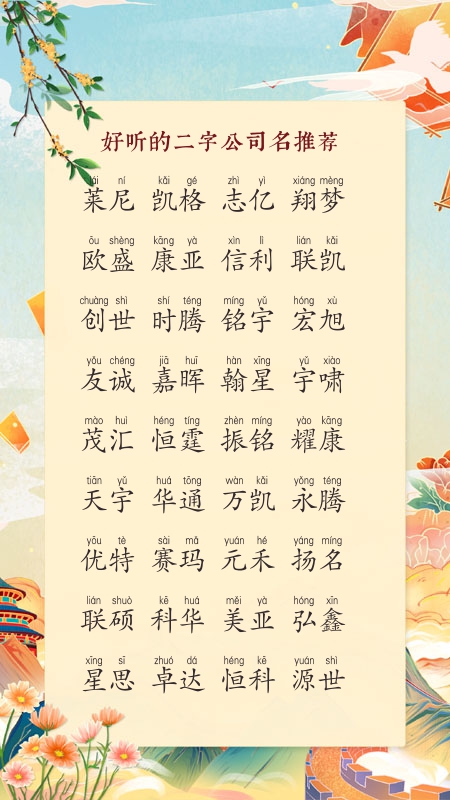 好听的二字公司名推荐
lái ní kǎi gé zhì yì xiáng mèng
莱尼 凯格 志亿 翔梦
ōu shèng kāng yà xìn lì lián kǎi
欧盛 康亚 信利 联凯
chuàng shì shí téng míng yǔ hóng xù
创世 时腾 铭宇 宏旭
yǒu chéng jiā huī hàn xīng yǔ xiào
友诚 嘉晖 翰星 宇啸
mào huì héng tíng zhèn míng yào kāng
茂汇 恒霆 振铭 耀康
tiān yǔ huá tōng wàn kǎi yǒng téng
天宇 华通 万凯 永腾
yōu tè sài mǎ yuán hé yáng míng
优特 赛玛 元禾 扬名
lián shuò kē huá měi yà hóng xīn
联硕 科华 美亚 弘鑫
xīng sī zhuó dá héng kē yuán shì
星思 卓达 恒科 源世